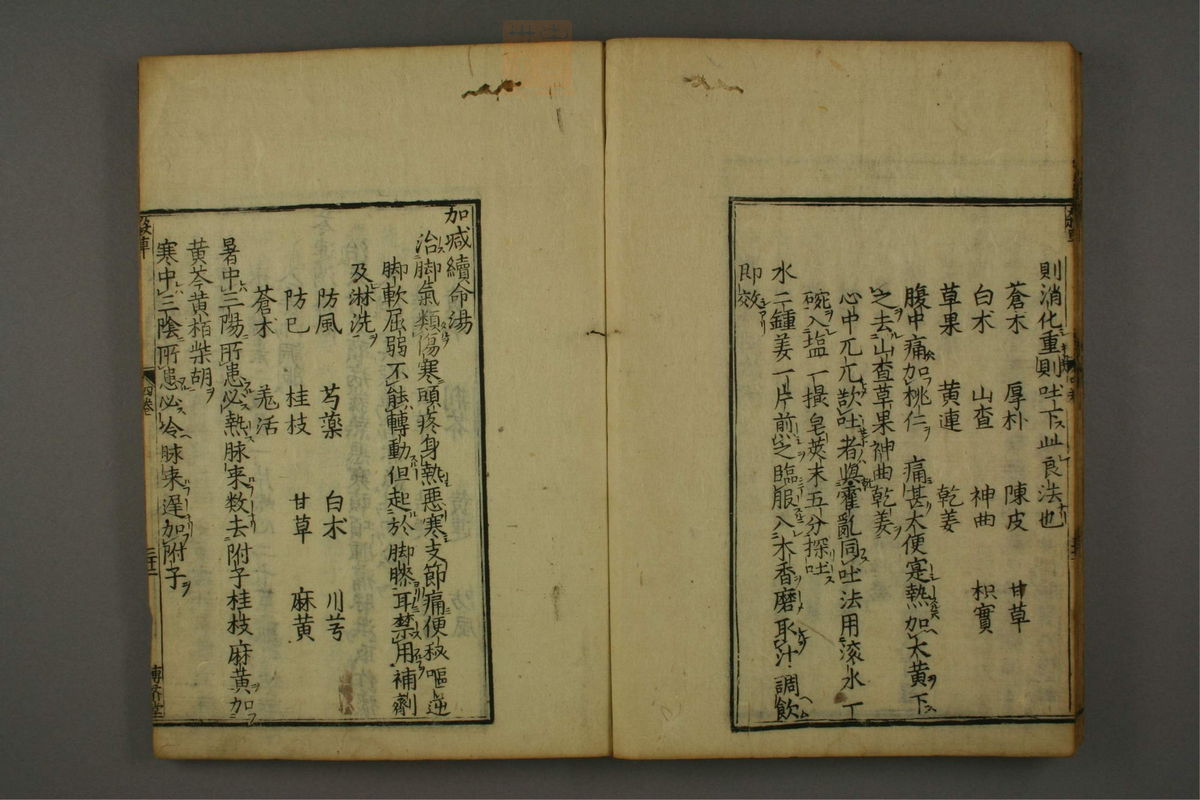 則消化重則吐下此良法也
蒼朮 厚朴 陳皮 甘草
白朮 山查 神曲 枳實
草果 黄連 乾姜
腹中痛加桃仁 痛甚大便寔熱加大黄下
之去山查草果神曲乾姜
心中兀兀欲吐者與霍亂同吐法用滚水一
碗入塩一撮皂莢末五分探吐
水二鍾姜一片煎之臨服入木香磨取汁調飲
即效
加减續命湯
治脚氣類傷寒頭疼身熱惡寒支節痛便秘嘔逆
脚軟屈弱不能轉動但起於脚膝耳禁用補劑
及淋洗
防風 芍藥 白朮 川芎
防已 桂枝 甘草 麻黄
蒼朮 羌活
暑中三陽所患必熱脉来数去附子桂枝麻黄加
黄芩黄栢柴胡
寒中三陰所患必冷脉来遲加附子
四卷
博濟堂